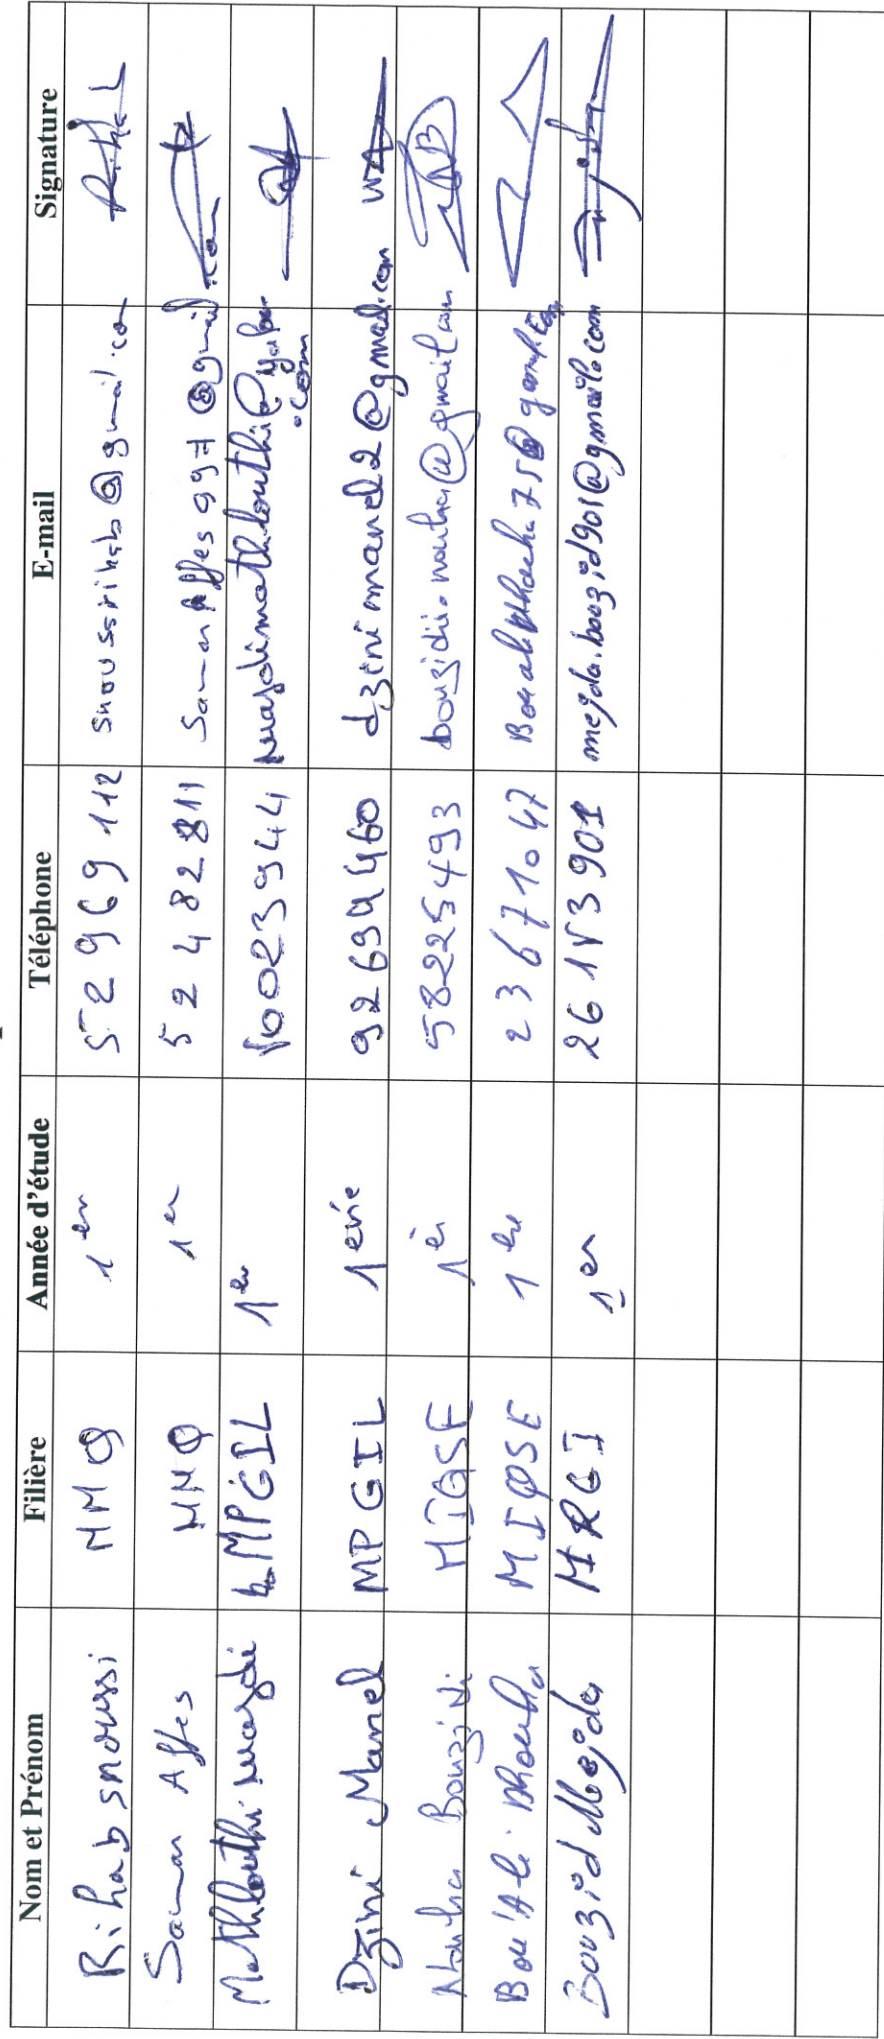 Nom et Prénom Filière Année d'étude Téléphone E-mail Signature
Rihab snoussi MMQ 1er 52969112 snoussirihab@gmail.com
Samar Affes MMQ 1er 52482811 SamarAffes997@gmail.com
Mathlouthi wajdi MPGIL 1er 50023944 wajdimathlouthi@yahoo.com
Dzini Manel MPGIL 1 ère 92694460 dzinimanel2@gmail.com
Bouzidi MIQSE 1 58225493
Bou Ali MIQSE 1er 23671047
Bouzid Mejda MRGI 1er 26153901 mejda.bouzid901@gmail.com